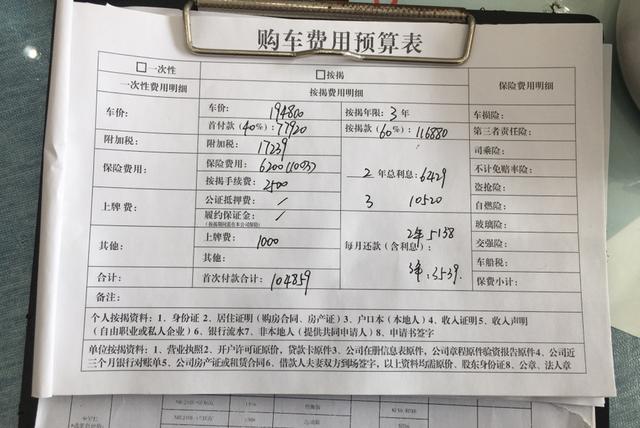 购车费用预算表
□一次性 □按揭 保险费用明细
一次性费用明细 按揭费用明细
车价: 车价: 194800 按揭年限: 3年 车损险:
首付款(40%): 77920 按揭款(60%): 116880 第三者责任险:
附加税: 附加税: 17239 司乘险:
保险费用: 保险费用: 6200(1003) 2 年总利息: 6429 不计免赔率险:
按揭手续费: 2500 3 10520 盗抢险:
上牌费: 公证抵押费: / 自燃险:
履约保证金: / 玻璃险:
(按揭期间需在本公司保险)
其他: 上牌费: 1000 每月还款(含利息): 2年5138 交强险:
其他: 3年:3539 车船税:
合计: 首次付款合计: 104859 保费小计:
备注:
个人按揭资料:1、身份证2、居住证明(购房合同、房产证)3、户口本(本地人)4、收入证明5、收入声明
(自由职业或私人企业)6、银行流水7、非本地人(提供共同申请人)8、申请书签字
单位按揭资料:1、营业执照2、开户许可证原价,贷款卡原件3、公司在册信息表原件,公司章程原件验资报告原件4、公司近
三个月银行对账单5、公司房产证或租赁合同6、借款人夫妻双方到场签字,以上资料均需原价、股东身份证8、公章、法人章